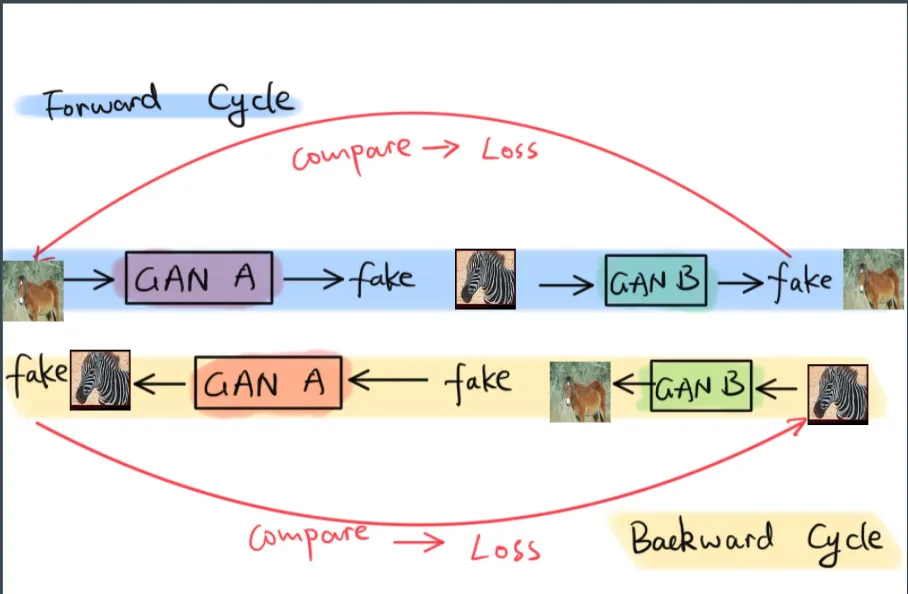 Forward Cycle
Compare → Loss
→ GAN A → fake → GAN B → fake
fake ← GAN A ← fake ← GAN B ←
Compare → Loss
Backward Cycle